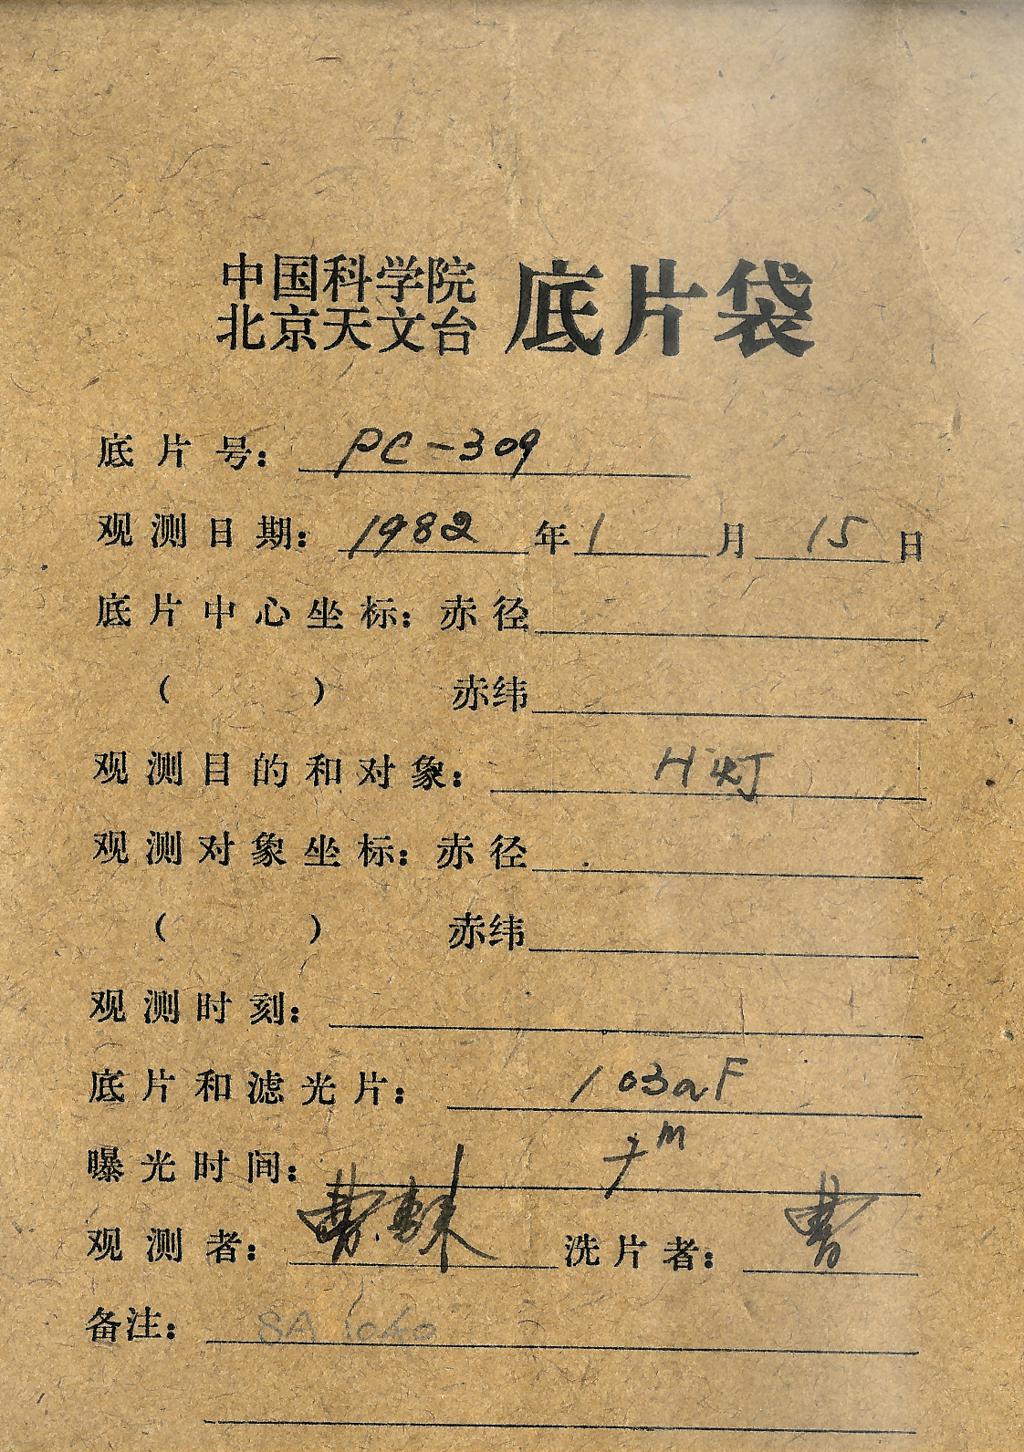 中国科学院
北京天文台 底片袋
底片号: PC-309
观测日期: 1982年1月15日
底片中心坐标: 赤径
( ) 赤纬
观测目的和对象: H灯
观测对象坐标: 赤径
( ) 赤纬
观测时刻:
底片和滤光片: 103aF
曝光时间: 7m
观测者: 曹 洗片者: 曹
备注: SA 1040